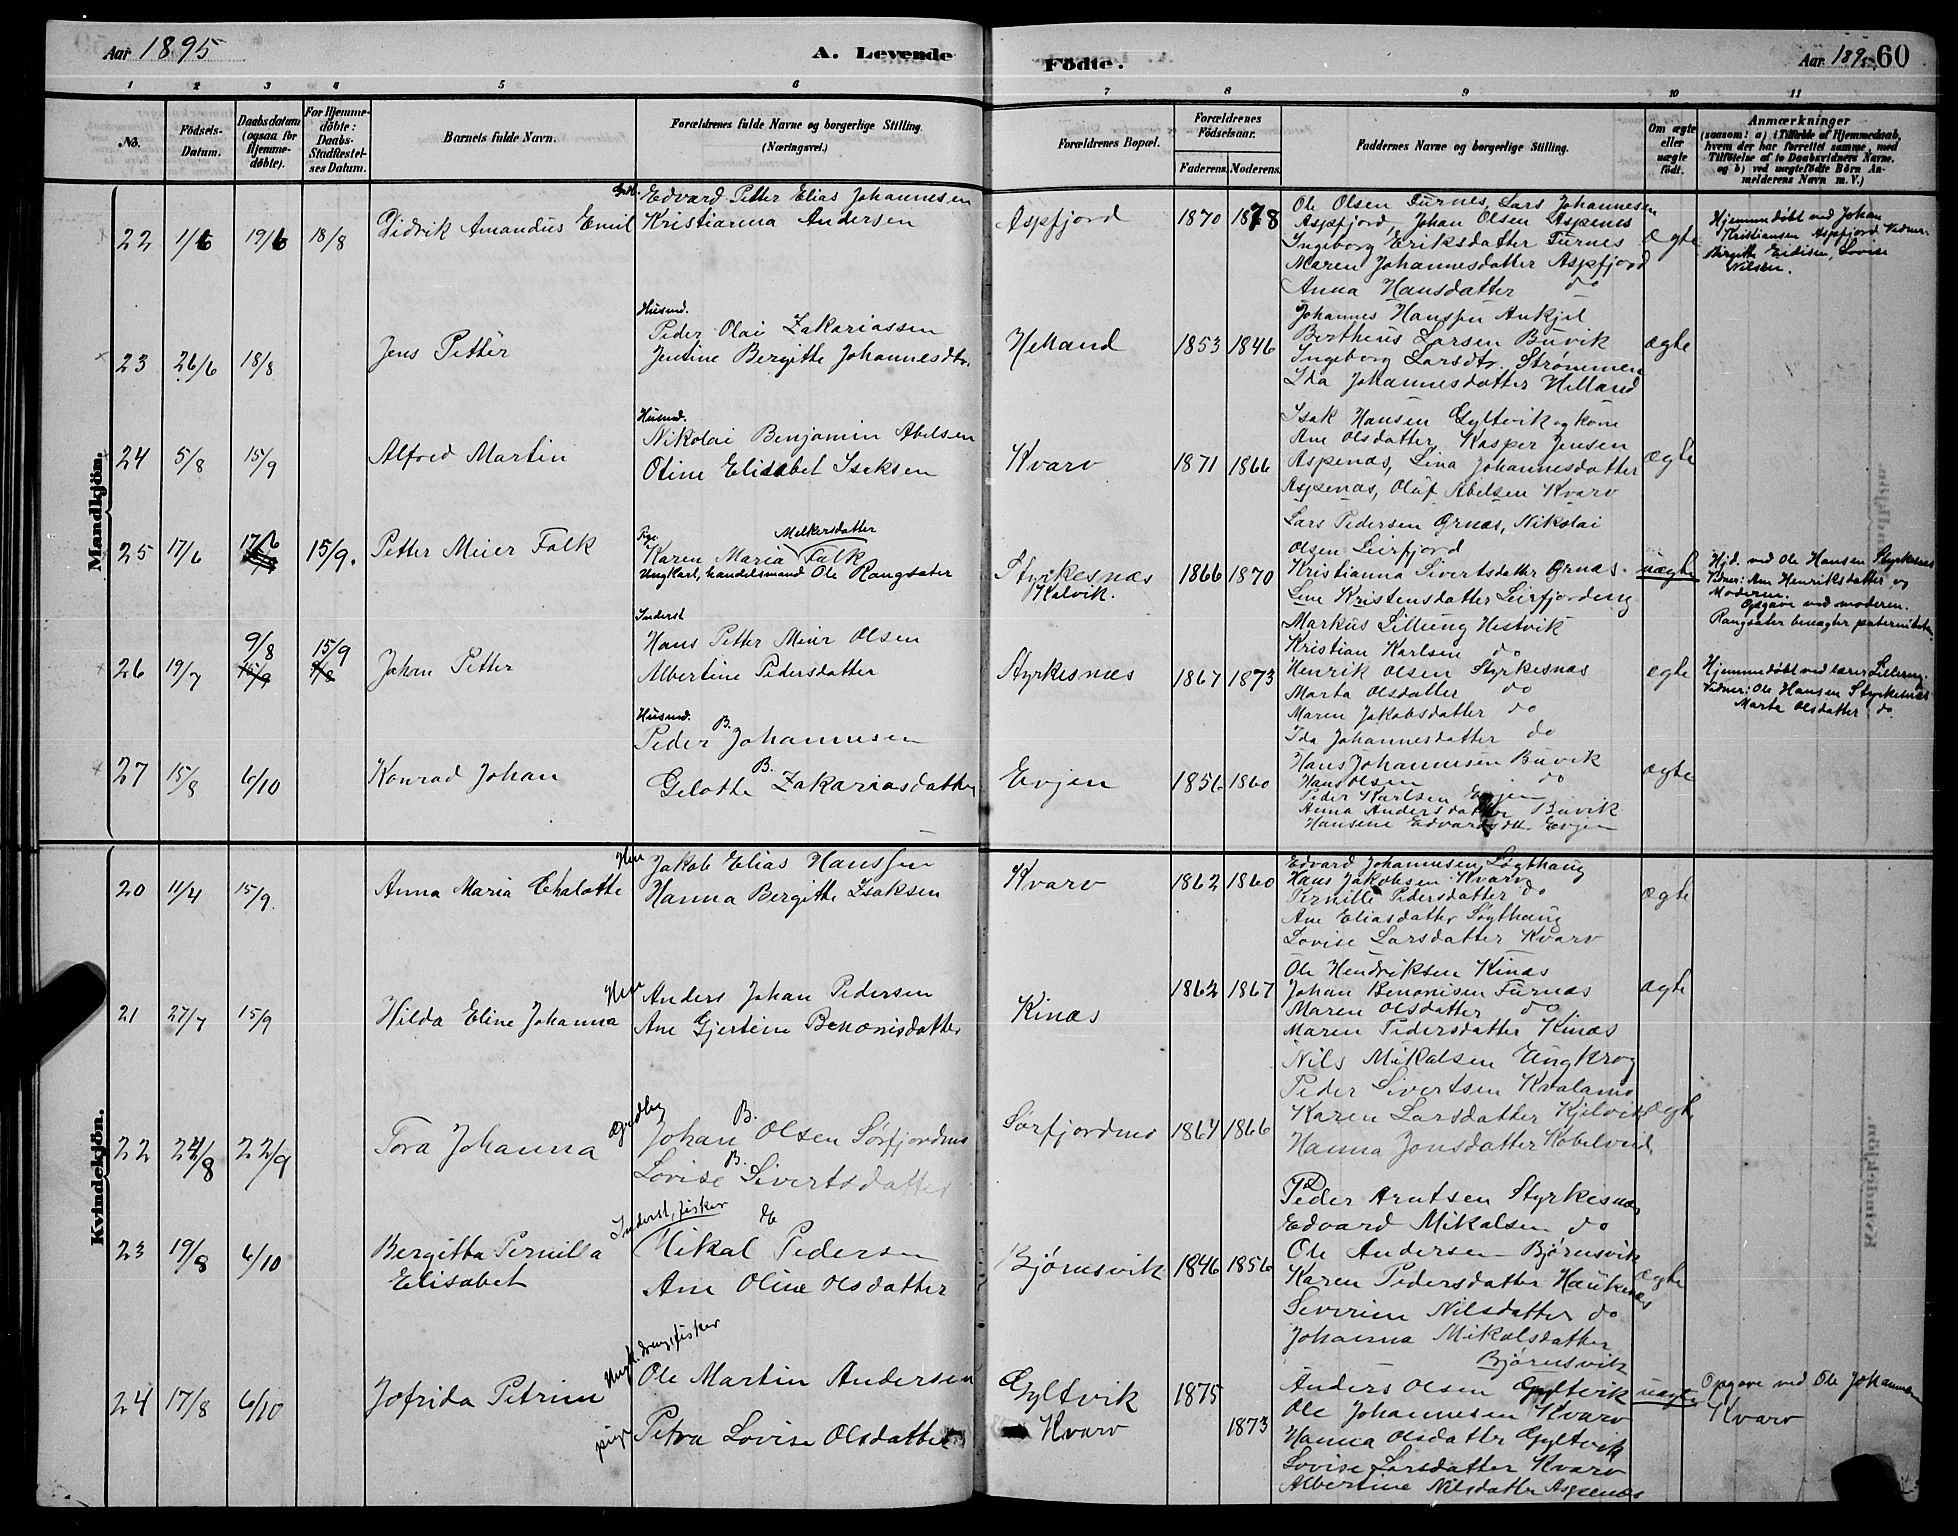 Aar 1895
A. Levende
Födte.
Aar 1895
60
1 2 3 4 5 6 7 8 9 10 11
No.
Födsels-
Datum.
Daabsdatum
(ogsaa for
Hjemme-
döbte).
For Hjemme-
döbte:
Daabs-
Stadfæstel-
ses Datum.
Barnets fulde Navn.
Forældrenes fulde Navne og borgerlige Stilling.
(Næringsvei.)
Forældrenes Bopæl.
Forældrenes
Födselsaar.
Faderens. Moderens.
Faddernes Navne og borgerlige Stilling.
Om ægte
eller
uægte
födt.
Anmærkninger
(saasom: a) i Tilfælde af Hjemmedaab,
hvem der har forrettet samme, med
Tilföielse af to Daabsvidners Navne,
og b) ved uægtefödte Börn An-
melderens Navn m. V.)
Mandkjön.
22 1/6 19/6 18/8
Didrik Amandus Emil
Edvard Petter Elias Johannesen
Kristianna Andersen
Aspfjord
1870 1878
Ole Olsen Furnes, Lars Johannesen
Aspfjord, Johan Olsen Aspenes
Ingeborg Eriksdatter Furnes
Maren Johannesdatter Aspfjord
Anna Hansdatter do
ægte
Hjemmedøbt ved Johan
Kristiansen Aspfjord Vidner:
Birgitte Eidisen, Lovise
Nilsen.
23 26/6 18/8
Jens Petter
Husmd.
Peder Olai Zakariassen
Jentine Bergitte Johannesdtr.
Helland
1853 1846
Johannes Hanssen Ankjel
Bertheus Larsen Buvik
Ingeborg Larsdtr. Strømmen
Ida Johannesdatter Helland
ægte
24 5/8 15/9
Alfred Martin
Husmd.
Nikolai Benjamin Abelsen
Otine Elisabet Isaksen
Kvarv
1871 1866
Isak Hansen Gyltvik og kone
Ane Olsdatter, Kasper Jensen
Aspenæs, Lina Johannesdatter
Aspenæs, Oluf Abelsen Kvarv
ægte
25 17/6 17/6 15/9.
Petter Meier Falk
Pige
Melkersdatter
Karen Maria Falk
Ungkarl, handelsmand Ole Rangsæter
Styrkesnæs
Kalvik.
1866 1870
Lars Pedersen Ørnæs, Nikolai
Olsen Leirfjord
Kristianna Sivertsdatter Ørnæs
Line Kristensdatter Leirfjordeng
Markus Lilleeng Hestvik
uægte
Hjd. ved Ole Hansen Styrkesnes
Vidner: Ane Henriksdatter og
Moderen.
Opgave ved moderen.
Rangsæter benægter paterniteten.
26 19/7 9/8 15/9
15/9 9/8
Johan Petter
Inderst
Hans Petter Meier Olsen
Albertine Pedersdatter
Styrkesnæs
1867 1873
Kristian Karlsen do
Henrik Olsen Styrkesnæs
Marta Olsdatter do
Maren Jakobsdatter do
Ida Johannesdatter do
ægte
Hjemmedøbt ved lærer Lilleeng.
Vidner: Ole Hansen Styrkesnæs
Marta Olsdatter do.
27 15/8 6/10
Konrad Johan
Husmd.
Peder B. Johannesen
Gelotte B. Zakariasdatter
Evjen
1856 1860
Hans Johannesen Buvik
Hans Olsen do
Peder Karlsen Evjen
Anna Andersdatter Buvik
Hansene Edvardsdtr. Evjen
ægte
Kvindekjön.
20 11/4 15/9.
Anna Maria Chalotte
Jakob Elias Hanssen
Hanna Bergitte Isaksen
Kvarv
1862 1860
Edvard Johannesen Løgthaug
Hans Jakobsen Kvarv
Pernille Pedersdatter do
Ane Eliasdatter Løgthaug
Lovise Larsdatter Kvarv
ægte
21 27/7 15/9
Hilda Eline Johanna
Anders Johan Pedersen
Ane Gjertine Benonisdatter
Kinæs
1862 1867
Ole Hendriksen Kinæs
Johan Benonisen Furnæs
Maren Olsdatter do
Maren Pedersdatter Kinæs
ægte
22 24/8 22/9
Tora Johanna
Grdbr.
Johan B. Olsen Sørfjordmo
Lovise B. Sivertsdatter
Sørfjordmo
1864 1866
Nils Mikalsen Engkrog
Peder Sivertsen Kvalamo
Karen Larsdatter Kjelvik
Hanna Jonsdatter Kobelveid
ægte
23 19/8 6/10
Bergitta Pernilla
Elisabet
Inderst, fisker
Mikal E Pedersen
Ane Oline Olsdatter
Bjørnsvik
1846 1856
Peder Arntsen Styrkesnæs
Edvard Mikalsen do
Ole Andersen Bjørnsvik
Karen Pedersdatter Haukenæs
Severine Nilsdatter do
Johanna Mikalsdatter
Bjørnsvik
ægte
24 17/8 6/10
Jofrida Petrine
Ungk. dreng, fisker
Ole Martin Andersen
pige
Petra Lovise Olsdatter
Gyltvik
Kvarv
1875
1873
Anders Olsen Gyltvik
Ole Johannesen Kvarv
Hanna Olsdatter Gyltvik
Lovise Larsdatter Kvarv
Albertine Nilsdatter Aspenæs
uægte
Opgave ved Ole Johannesen
Kvarv